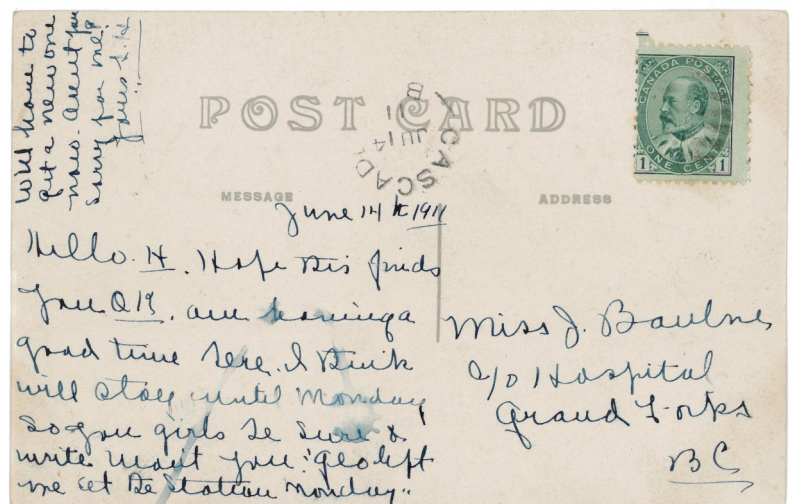 Will have to
get a new one
now. Arent you
sorry for me?
yours L.H
POST CARD
CASCAD
JU 14
11
B
CANADA POSTAGE
1 1
ONE CENT
MESSAGE
ADDRESS
June 14th 1911
Hello. H. Hope this finds
you O.K. am having a
good time here. I think
will stay until Monday
So you girls be sure &
write wont you. Geo left
me at the Station Monday.
Miss J. Baulne
c/o Hospital
Grand Forks
BC